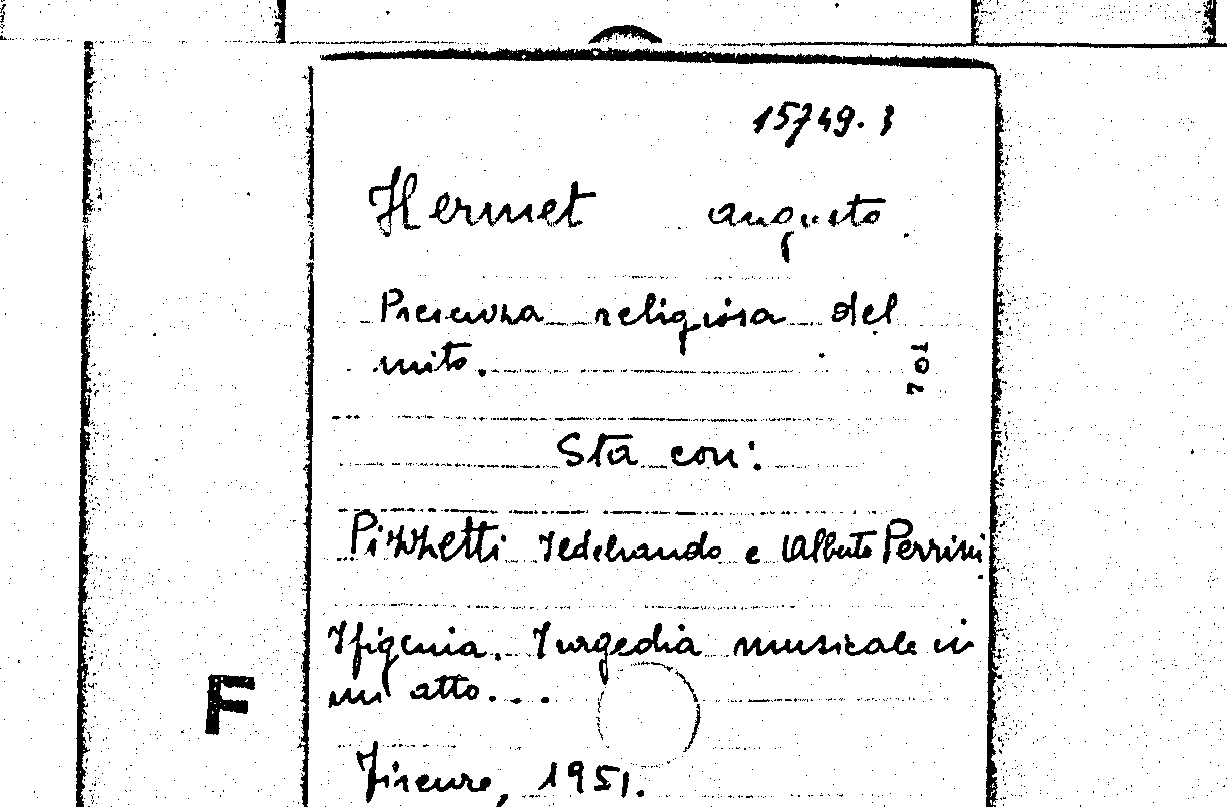 15749.3
Hermet augusto.
Presenza religiosa del
mito.
701
Sta con:
Pizzetti Ildebrando e Alberto Perrini
Ifigenia. Turgedia musicale in
un atto...
F
Firenze, 1951.